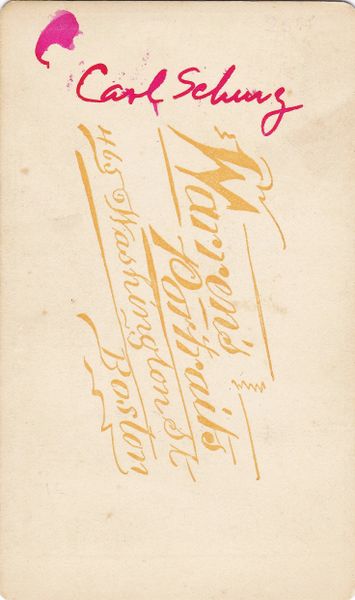 Carl Schurz
Warren's
Portraits
465 Washington St.
Boston